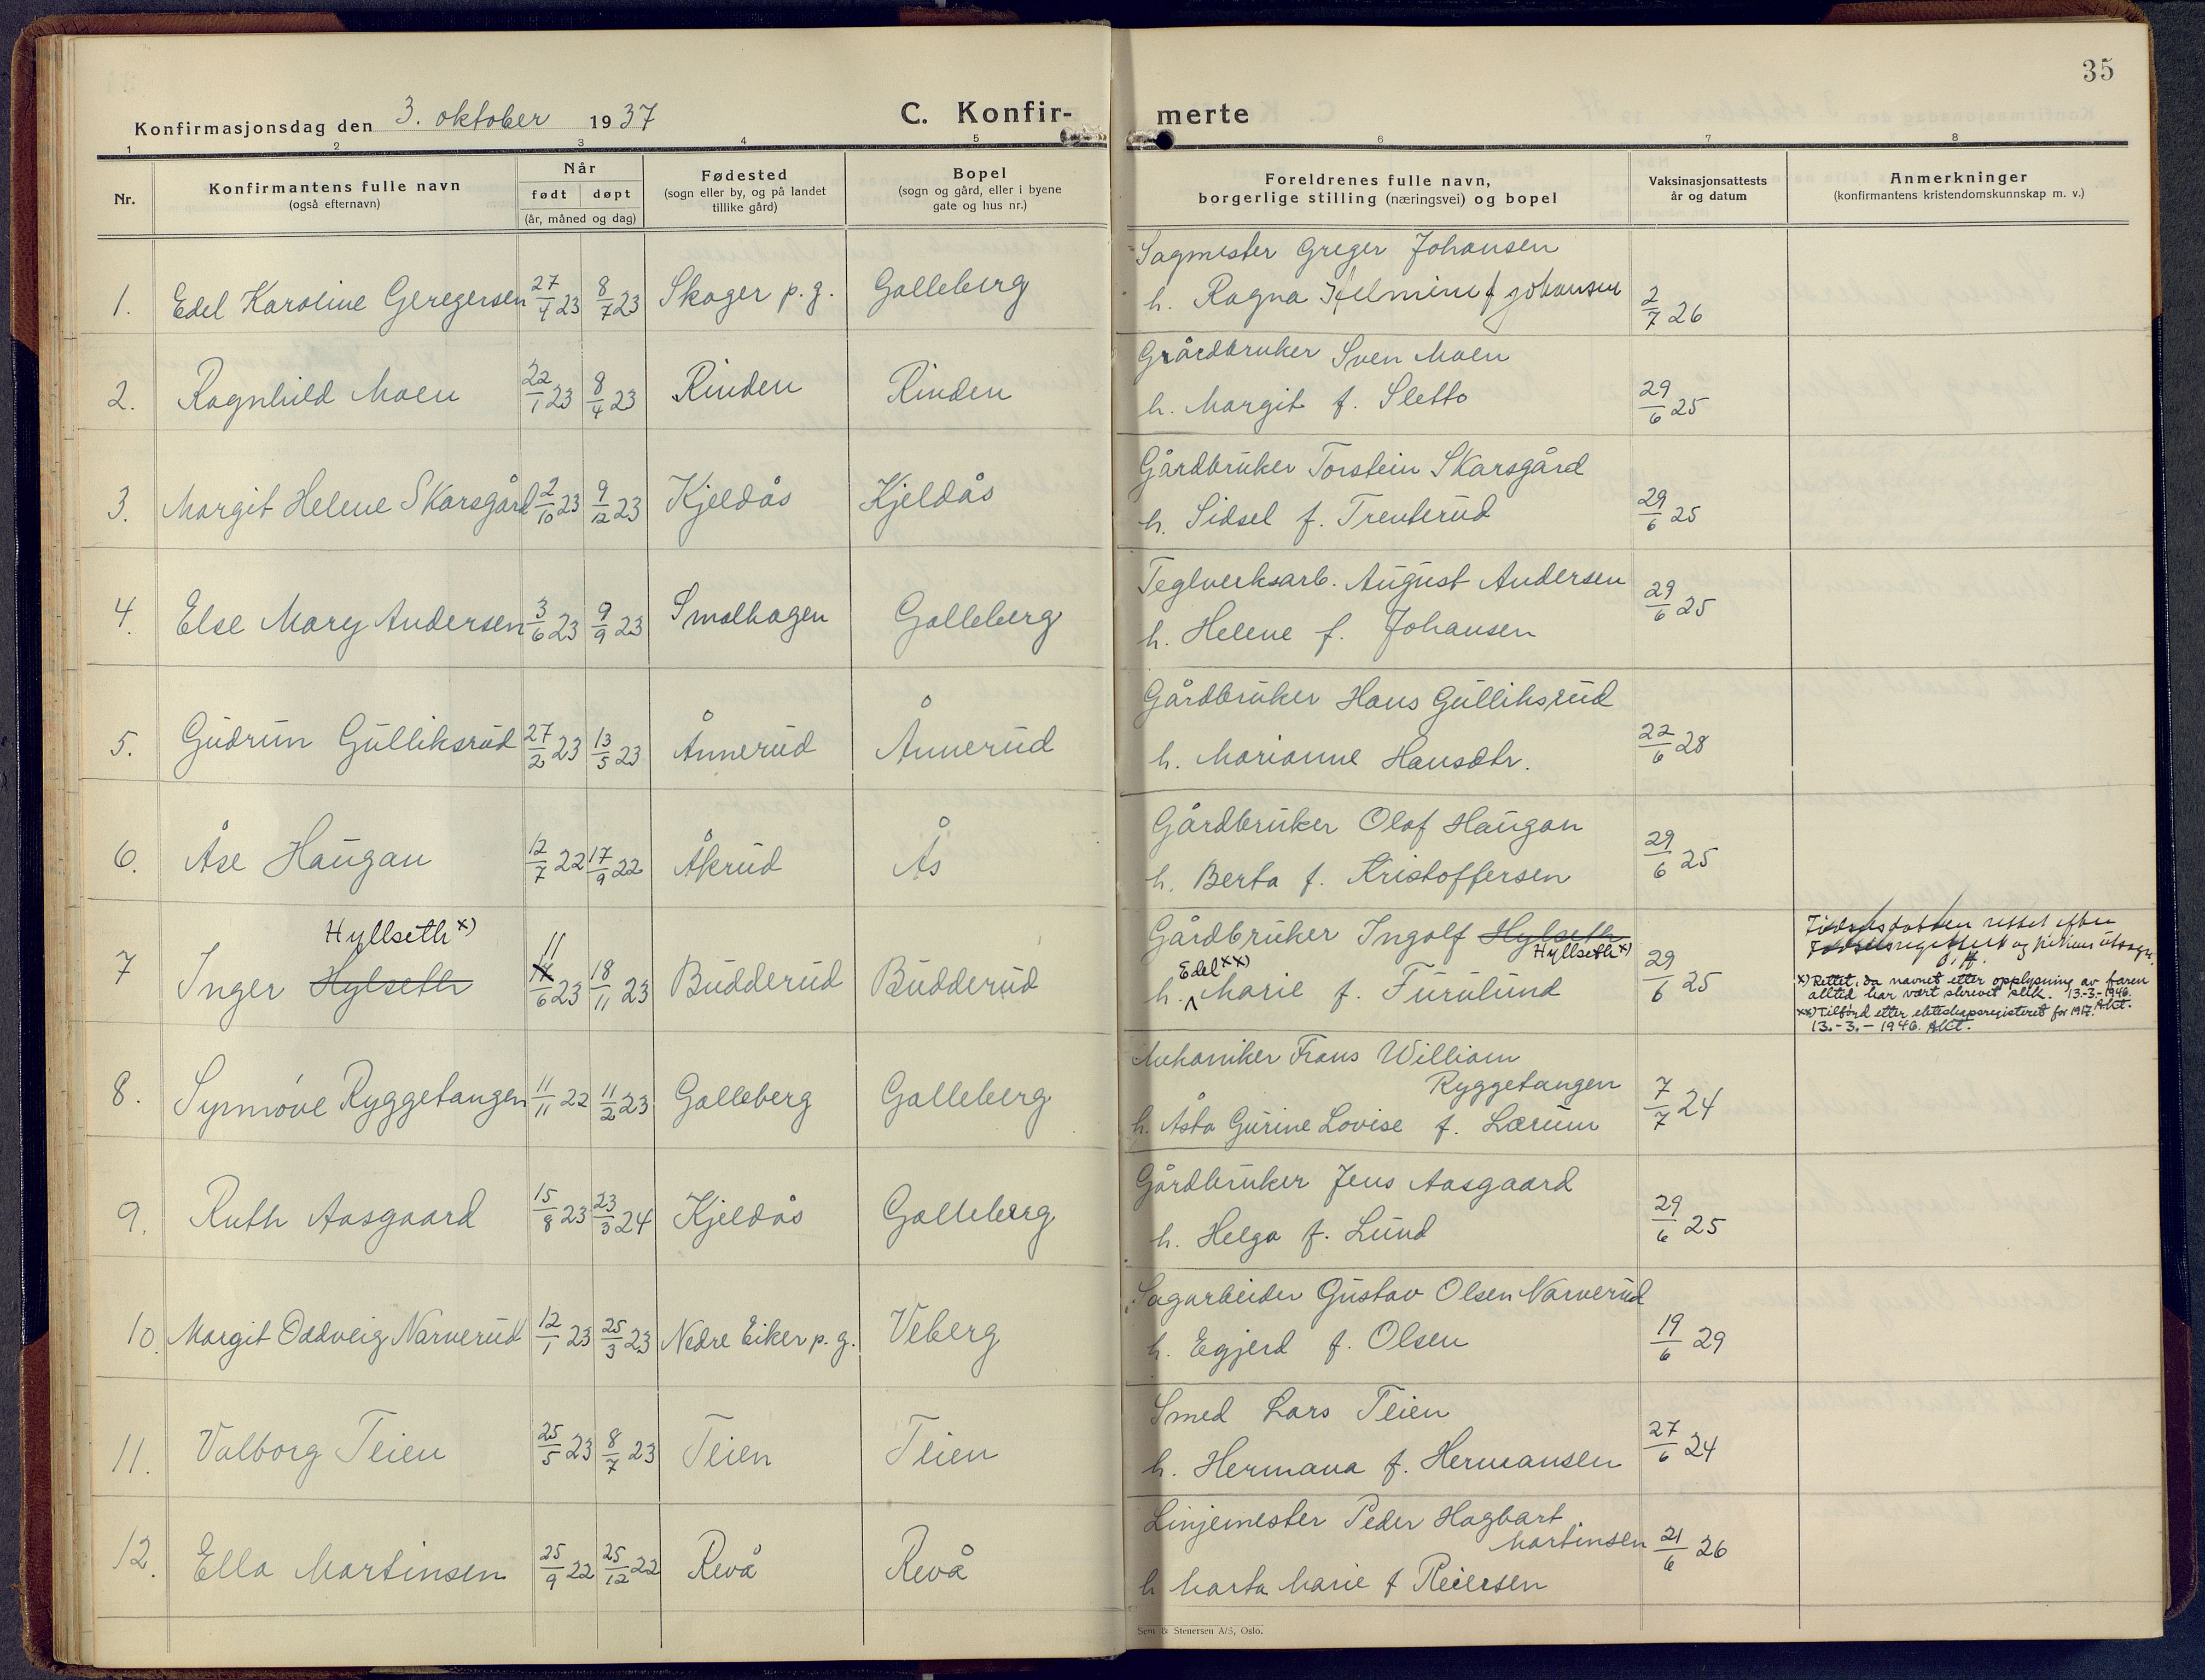 35
Konfirmasjonsdag den 3. oktober 1937
C. Konfirmerte
1 2 3 4 5 6 7 8
Nr.
Konfirmantens fulle navn
(også efternavn)
Når
født døpt
(år, måned og dag)
Fødested
(sogn eller by, og på landet
tillike gård)
Bopel
(sogn og gård, eller i byene
gate og hus nr.)
Foreldrenes fulle navn,
borgerlige stilling (næringsvei) og bopel
Vaksinasjonsattests
år og datum
Anmerkninger
(konfirmantens kristendomskunnskap m. v.)
Sagmester Greger Johansen
1. Edel Karoline Geregersen 27/4 23 8/7 23 Skoger p. g. Galleberg h. Ragna Helmine f Johansen 2/7 26
Gråardbruker Sven Moen
2. Ragnhild Moen 22/1 23 8/4 23 Rinden Rinden h. Margit f. Sletto 29/6 25
Gårdbruker Torstein Skarsgård
3. Margit Helene Skarsgård 2/10 23 9/12 23 Kjeldås Kjeldås h. Sidsel f. Trenterud 29/6 25
Teglverksarb. August Andersen
4. Else Mary Andersen 3/6 23 9/9 23 Smalhagen Galleberg h. Helene f. Johansen 29/6 25
Gårdbruker Hans Gulliksrud
5. Gudrun Gulliksrud 27/2 23 13/5 23 Ånnerud Ånnerud h. Marianne Hansdtr. 22/6 28
Gårdbruker Olaf Haugan
6. Åse Haugan 12/7 22 17/9 22 Åkrud Ås h. Berta f. Kristoffersen 29/6 25
Hyllseth x) 11 Gårdbruker Ingolf Hylseth Hyllseth x)
7 Inger Hylseth 6 23 18/11 23 Budderud Budderud h. Edel xx) Marie f. Furulund 29/6 25
rettet efter
og
x) Rettet, da navnet etter opplysning av faren
alltid har vært skrevet slik. 13.-3.-1946.
xx) Tilførd etter ekteskapsregisteret for 1917.
13.-3.-1946.
Mekaniker Frans William
Ryggetangen
8. Synnøve Ryggetangen 11/11 22 11/2 23 Galleberg Galleberg h. Åsta Gurine Lovise f. Lærum 7/7 24
Gårdbruker Jens Aasgaard
9. Ruth Aasgaard 15/8 23 23/3 24 Kjeldås Galleberg h. Helga f. Lund 29/6 25
Sagarbeider Gustav Olsen Narverud
10. Margit Oddveig Narverud 12/1 23 25/3 23 Nedre Eiker p. g. Veberg h. Egjerd f. Olsen 19/6 29
Smed Lars Teien
11. Valborg Teien 25/5 23 8/7 23 Teien Teien h. Hermana f. Hermansen 27/6 24
Linjemester Peder Hagbart
Martinsen
12. Ella Martinsen 25/9 22 25/12 22 Revå Revå h Marta Marie f Reiersen 21/6 26
Sem & Stenersen A/S, Oslo.